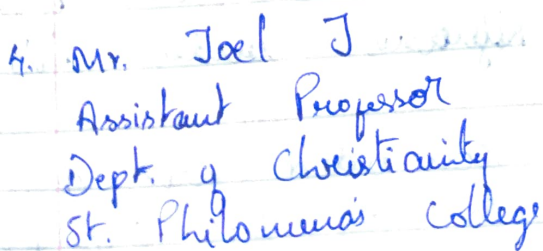 4. Mr. Joel J
Assistant Professor
Dept. of Christianity
St. Philomena's College